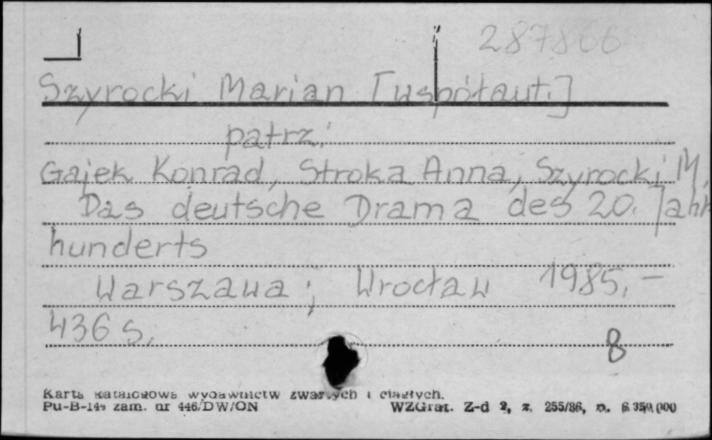 287866
Szyrocki Marian [współaut.]
patrz:
Gajek Konrad, Stroka Anna, Szyrocki M.
Das deutsche Drama des 20. Jahr
hunderts
Warszawa; Wrocław 1985.-
436 s.
8
Karta katalogowa wydawnictw zwartych i ciągłych.
Pu-B-144 zam. nr 446/DW/ON WZGraf. Z-d 2, z. 255/86, n. 6 350 000